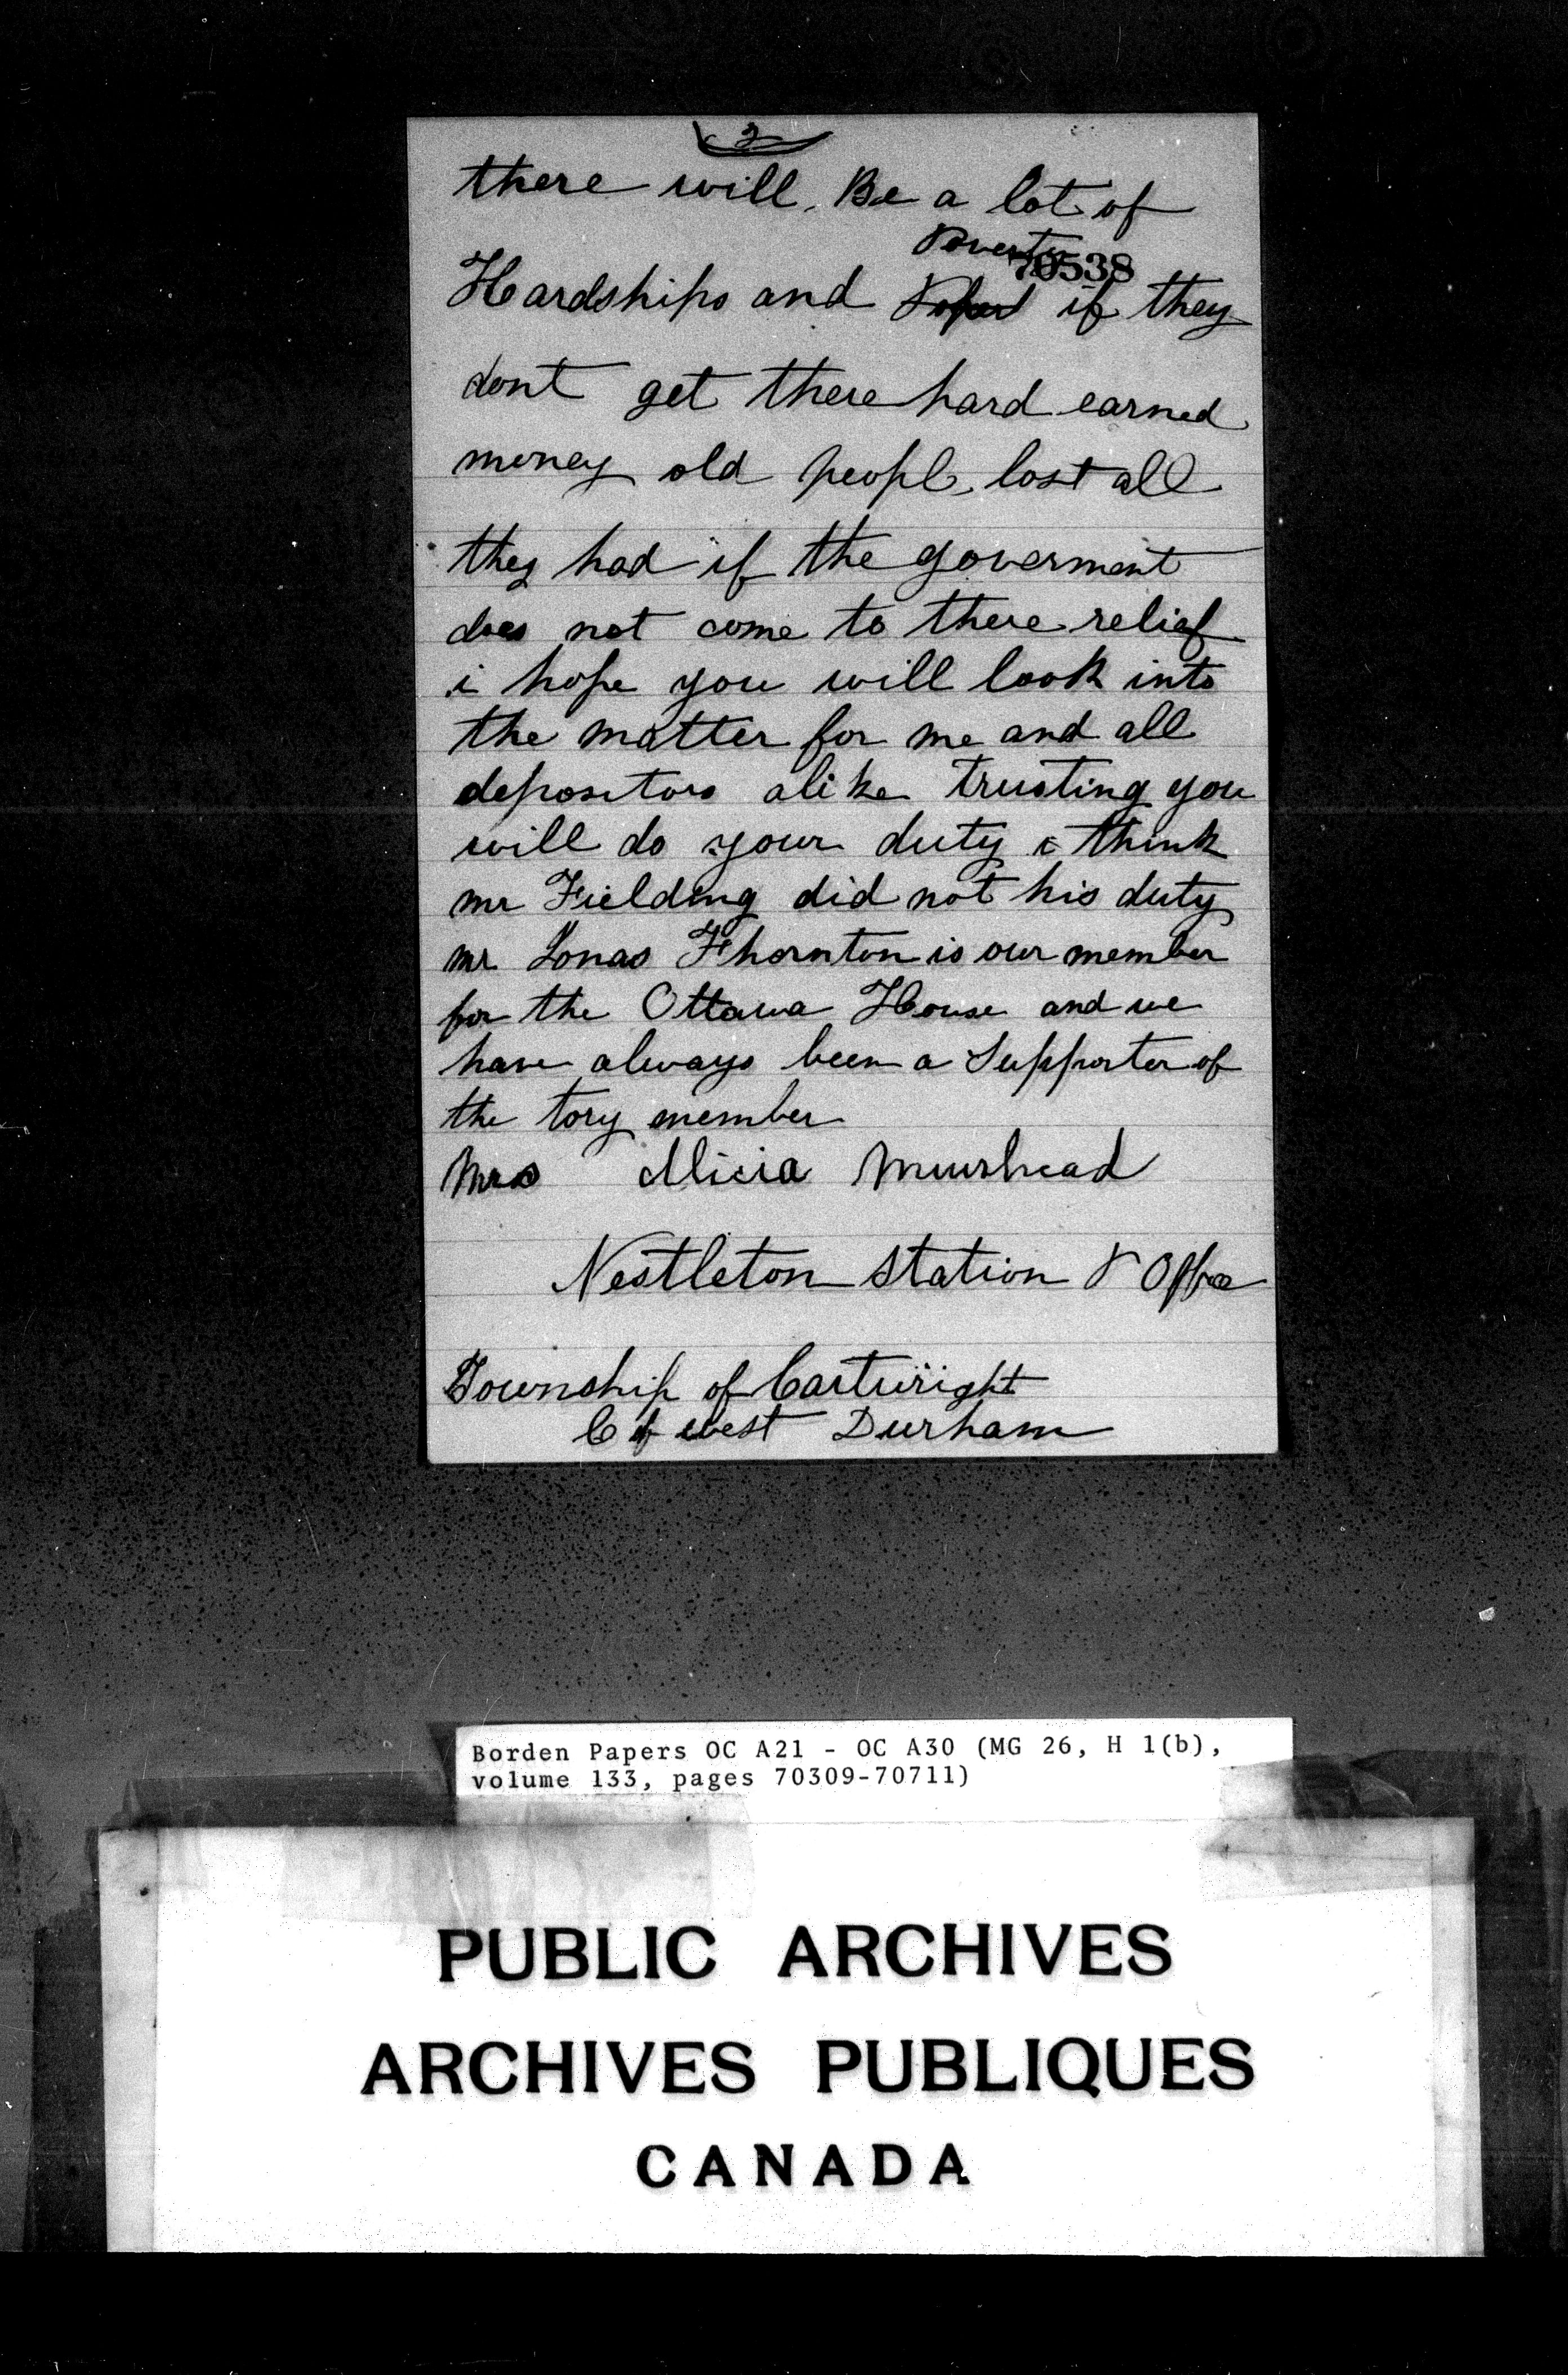 2
there will Be a lot of
Poverty
70538
Hardships and if they
dont get there hard earned
money old peopl lost all
they had if the goverment
does not come to there relief
i hope you will look into
the matter for me and all
depositors alike trusting you
will do your duty i think
mr Fielding did not his duty
mr Jonas Thornton is our member
for the Ottawa House and we
have always been a Supporter of
the tory member
Mrs Alicia Muirhead
Nestleton Station P Office
Township of Cartwright
C of west Durham
Borden Papers OC A21 - OC A30 (MG 26, H 1(b),
volume 133, pages 70309-70711)
PUBLIC ARCHIVES
ARCHIVES PUBLIQUES
CANADA